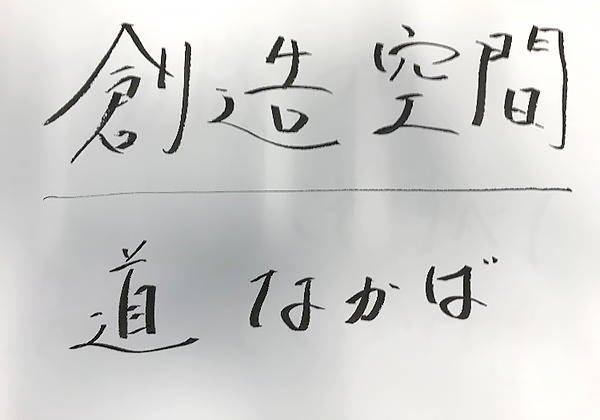 創造空間
道 なかば